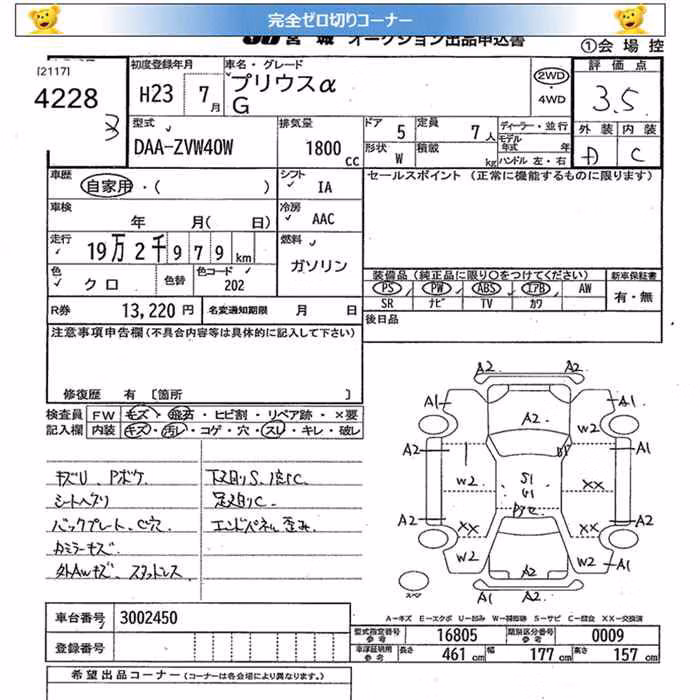 完全ゼロ切りコーナー
宮城 オークション出品申込書
①会 場 控
[2117]
4228
初度登録年月
H23 7月
車名・グレード
プリウスα
G
2WD
・
4WD
評 価 点
3.5
外 装 内 装
A C
型式
DAA-ZVW40W
排気量
1800 cc
ドア 5
定員 7人
形状 W
積載 kg
ディーラー・並行
モデル年式 年
ハンドル 左・右
車歴
自家用・( )
シフト IA
セールスポイント (正常に機能するものに限ります)
車検
年 月( 日)
冷房 AAC
走行 19万2千979km
燃料
ガソリン
色 クロ
色替
色コード
202
装備品(純正品に限り○をつけてください)
新車保証書
PS PW ABS エアB AW
SR ナビ TV カワ
有・無
R券 13,220円
名変通知期限 月 日
後日品
注意事項申告欄(不具合内容等は具体的に記入して下さい)
修復歴 有 [箇所 ]
検査員 FW キズ・飛石・ヒビ割・リペア跡・×要
記入欄 内装 キズ・汚レ・コゲ・穴・スレ・キレ・破レ
キズU、Pボケ
シートヘタリ
バックプレート、C穴
カミラーキズ
外AWキズ、スタッドレス
下廻りS、倍C
足廻りC
エンドパネル歪み
A2 A2
A1 A1
A2
W2
A2 A1
W2 S1 XX
U1
A2 A2
XX XX
W2 W2
A2
A1 A2
スペア
A-キズ E-エクボ U-凹み W-補修跡 S-サビ C-腐食 XX-交換済
車台番号 3002450
登録番号
型式指定番号 参考 16805
類別区分番号 参考 0009
車庫証明用 参考 長さ 461cm 幅 177cm 高さ 157cm
希望出品コーナー (コーナーは各会場により異なります。)